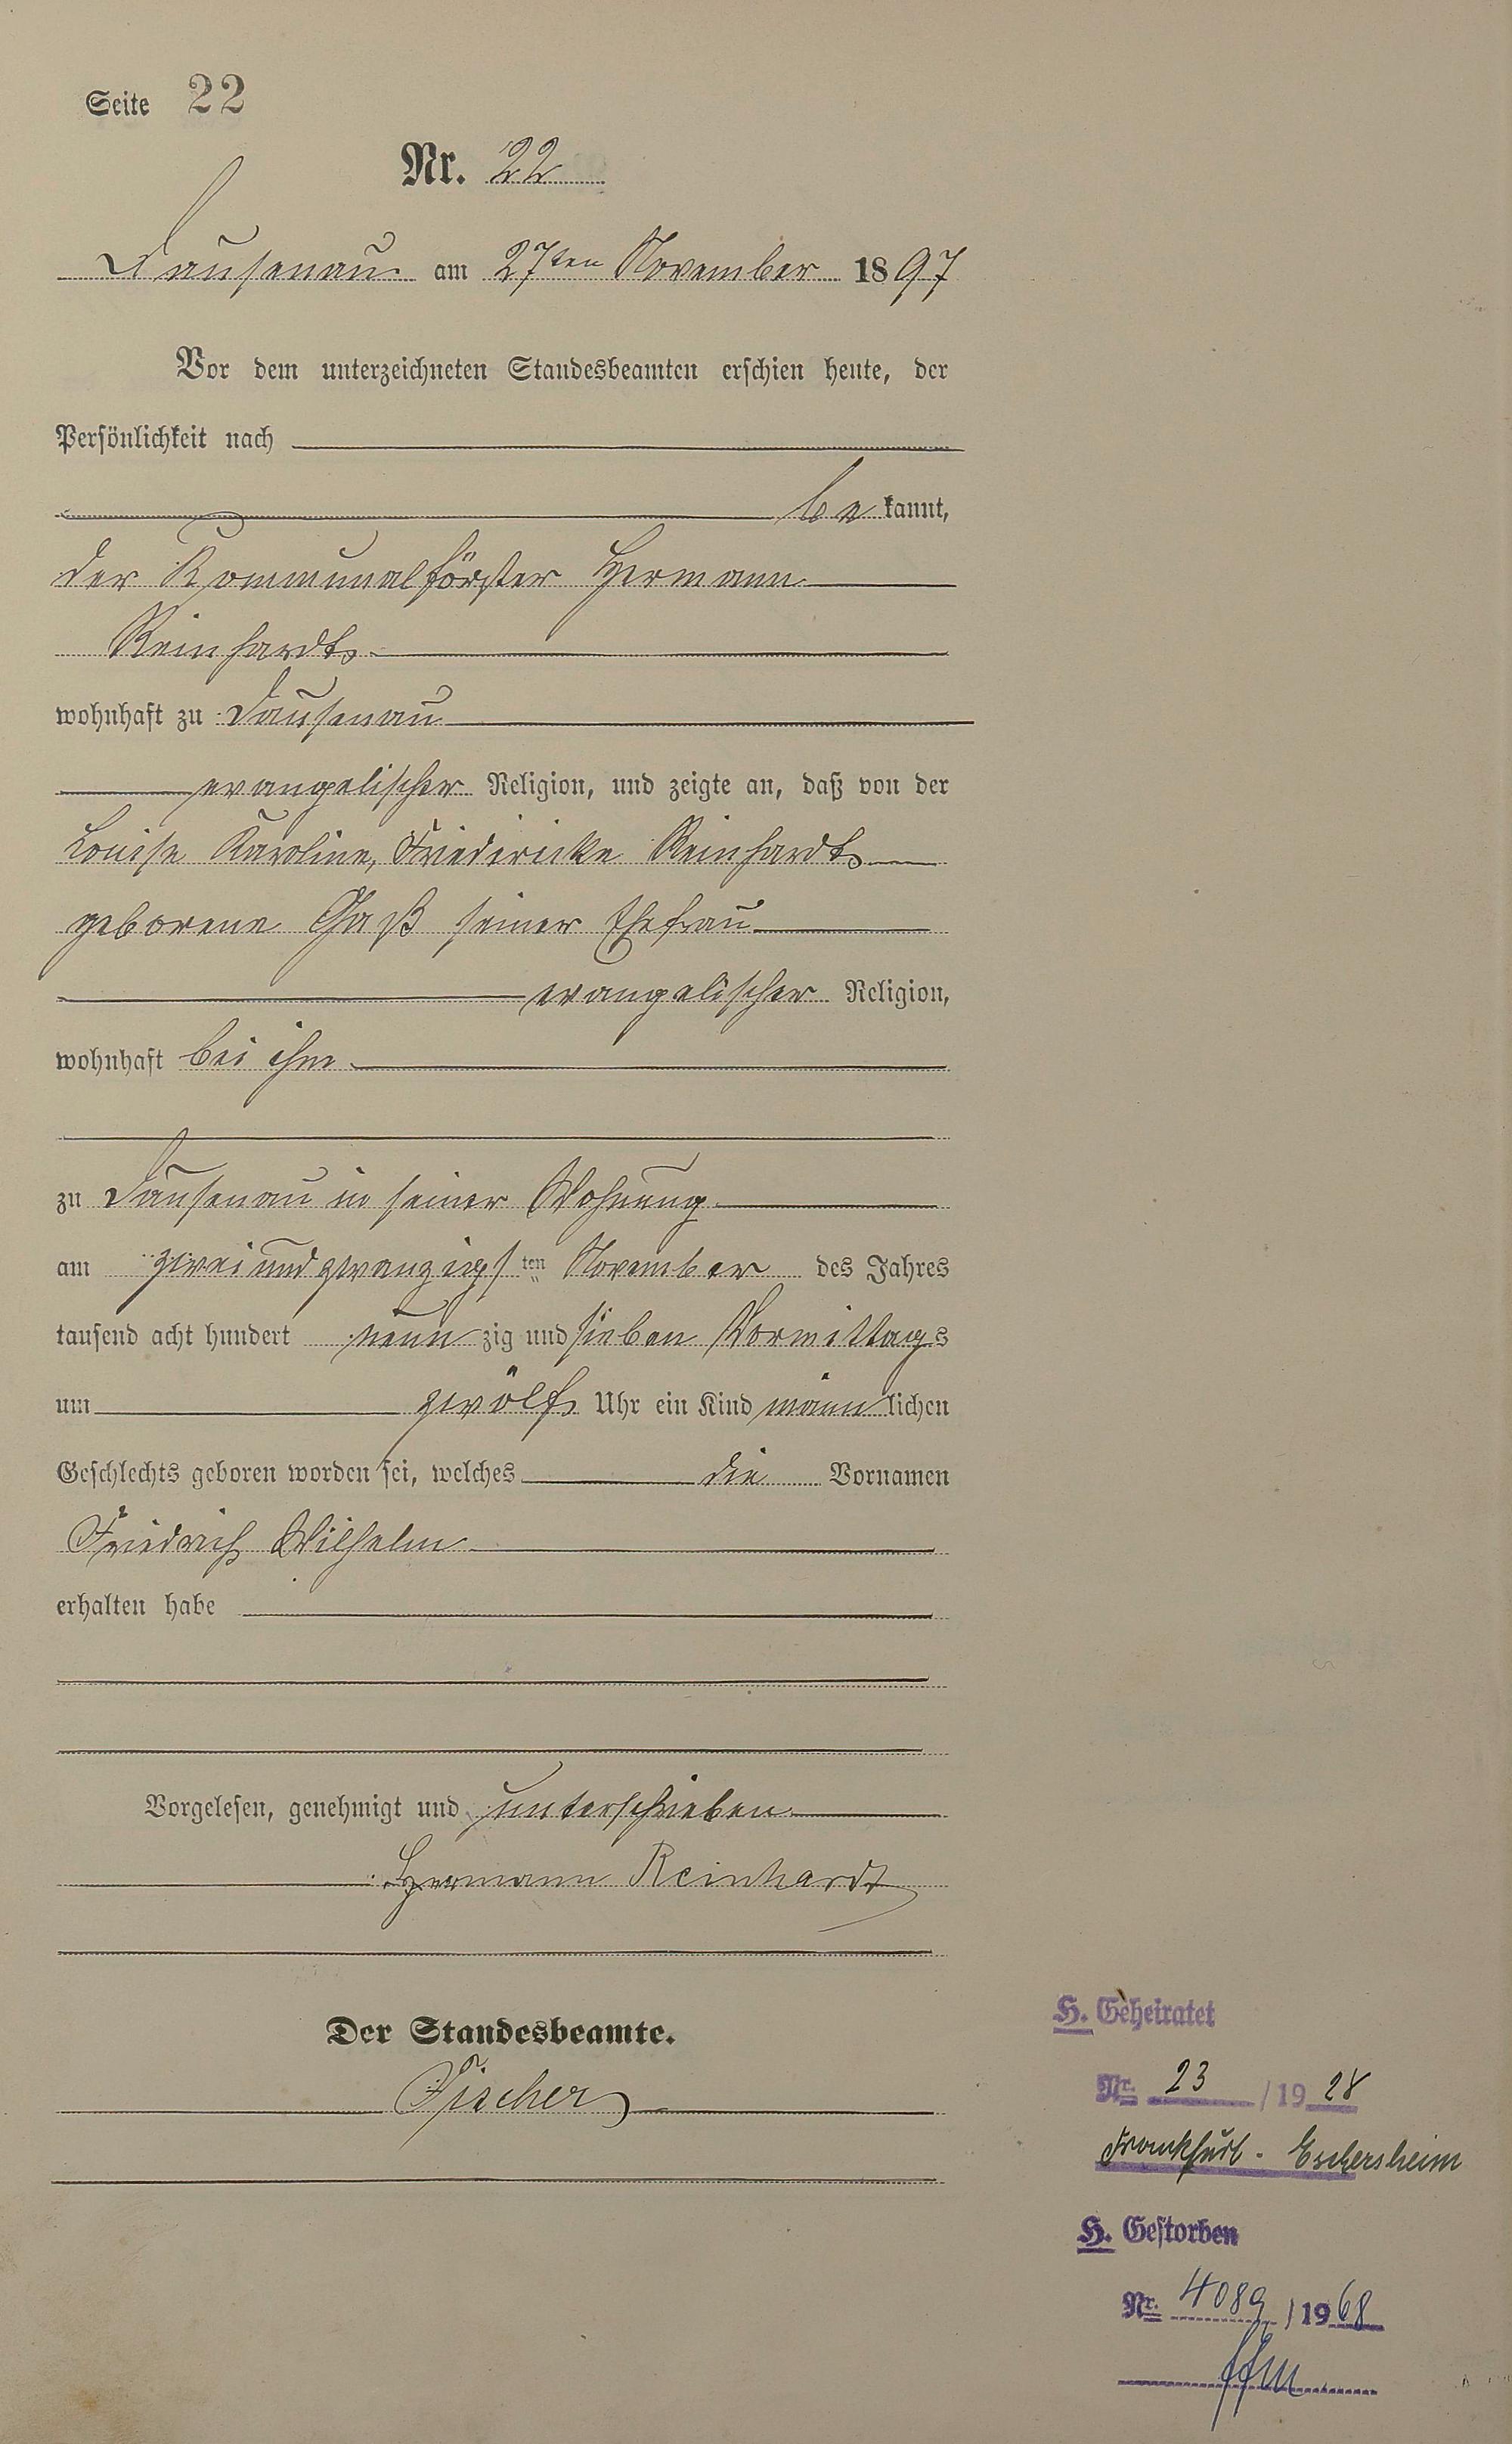 Seite 22
Nr. 22
Dausenau am 27ten November 1897
Vor dem unterzeichneten Standesbeamten erschien heute, der
Persönlichkeit nach
bekannt,
der Kommunalförster Hermann
Reinhardt
wohnhaft zu Dausenau
evangelischer Religion, und zeigte an, daß von der
Louise Karoline, Friedericke Reinhardt
geborene Gaß seiner Ehefrau
evangelischer Religion,
wohnhaft bei ihm
zu Dausenau in seiner Wohnung
am zweiundzwanzigsten November des Jahres
tausend acht hundert neunzig und sieben Vormittags
um zwölf Uhr ein Kind männlichen
Geschlechts geboren worden sei, welches die Vornamen
Friedrich Wilhelm
erhalten habe
Vorgelesen, genehmigt und unterschrieben
Hermann Reinhardt
Der Standesbeamte.
Fischer
H. Geheiratet
Nr. 23 / 19 28
Frankfurt - Eschersheim
H. Gestorben
Nr. 4089 / 1968
Ffm